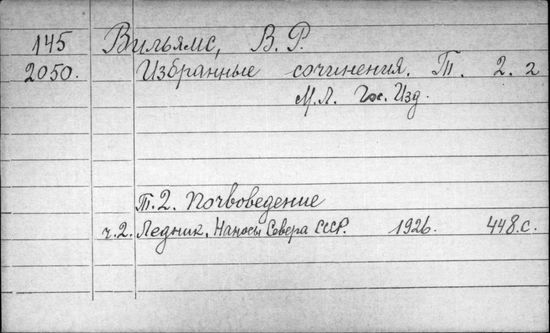 145 Вильямс, В. Р.
2050. Избранные сочинения. Т. 2. 2
М.Л. Гос. Изд.
Т. 2. Почвоведение
ч. 2. Ледник. Наносы Севера СССР. 1926. 448 с.